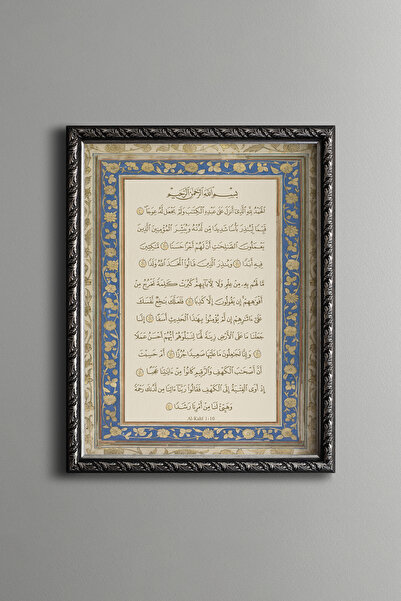 بِسْمِ اللَّهِ الرَّحْمَٰنِ الرَّحِيمِ
الْحَمْدُ لِلَّهِ الَّذِي أَنزَلَ عَلَىٰ عَبْدِهِ الْكِتَابَ وَلَمْ يَجْعَل لَّهُ عِوَجًا ۝
قَيِّمًا لِّيُنذِرَ بَأْسًا شَدِيدًا مِّن لَّدُنْهُ وَيُبَشِّرَ الْمُؤْمِنِينَ الَّذِينَ
يَعْمَلُونَ الصَّالِحَاتِ أَنَّ لَهُمْ أَجْرًا حَسَنًا ۝ مَّاكِثِينَ
فِيهِ أَبَدًا ۝ وَيُنذِرَ الَّذِينَ قَالُوا اتَّخَذَ اللَّهُ وَلَدًا ۝
مَّا لَهُم بِهِ مِنْ عِلْمٍ وَلَا لِآبَائِهِمْ كَبُرَتْ كَلِمَةً تَخْرُجُ مِنْ
أَفْوَاهِهِمْ إِن يَقُولُونَ إِلَّا كَذِبًا ۝ فَلَعَلَّكَ بَاخِعٌ نَّفْسَكَ
عَلَىٰ آثَارِهِمْ إِن لَّمْ يُؤْمِنُوا بِهَٰذَا الْحَدِيثِ أَسَفًا ۝ إِنَّا
جَعَلْنَا مَا عَلَى الْأَرْضِ زِينَةً لَّهَا لِنَبْلُوَهُمْ أَيُّهُمْ أَحْسَنُ عَمَلًا
۝ وَإِنَّا لَجَاعِلُونَ مَا عَلَيْهَا صَعِيدًا جُرُزًا ۝ أَمْ حَسِبْتَ
أَنَّ أَصْحَابَ الْكَهْفِ وَالرَّقِيمِ كَانُوا مِنْ آيَاتِنَا عَجَبًا ۝
إِذْ أَوَى الْفِتْيَةُ إِلَى الْكَهْفِ فَقَالُوا رَبَّنَا آتِنَا مِن لَّدُنكَ رَحْمَةً
وَهَيِّئْ لَنَا مِنْ أَمْرِنَا رَشَدًا ۝
Al-Kahf 1-10